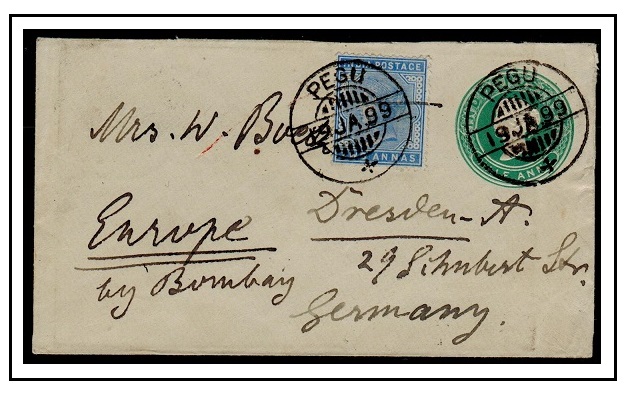 INDIA POSTAGE
ANNAS
PEGU
19 JA 99
PEGU
19 JA 99
HALF ANNA
Mrs. W.
Dresden-A.
Europe
29 Schubert Str.
by Bombay
Germany.